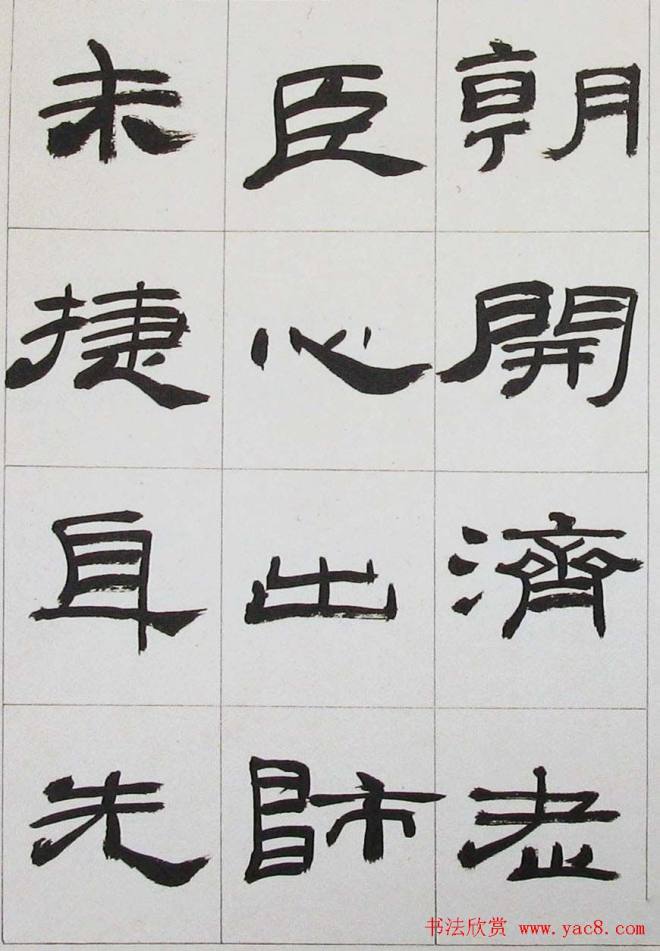 朝開濟老
臣心出師
未捷身先
书法欣赏 www.yac8.com